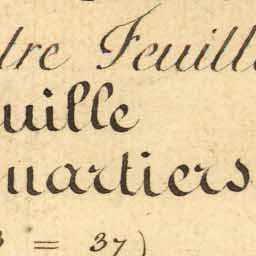 tre Feuill
uille
uartiers
3 = 37)